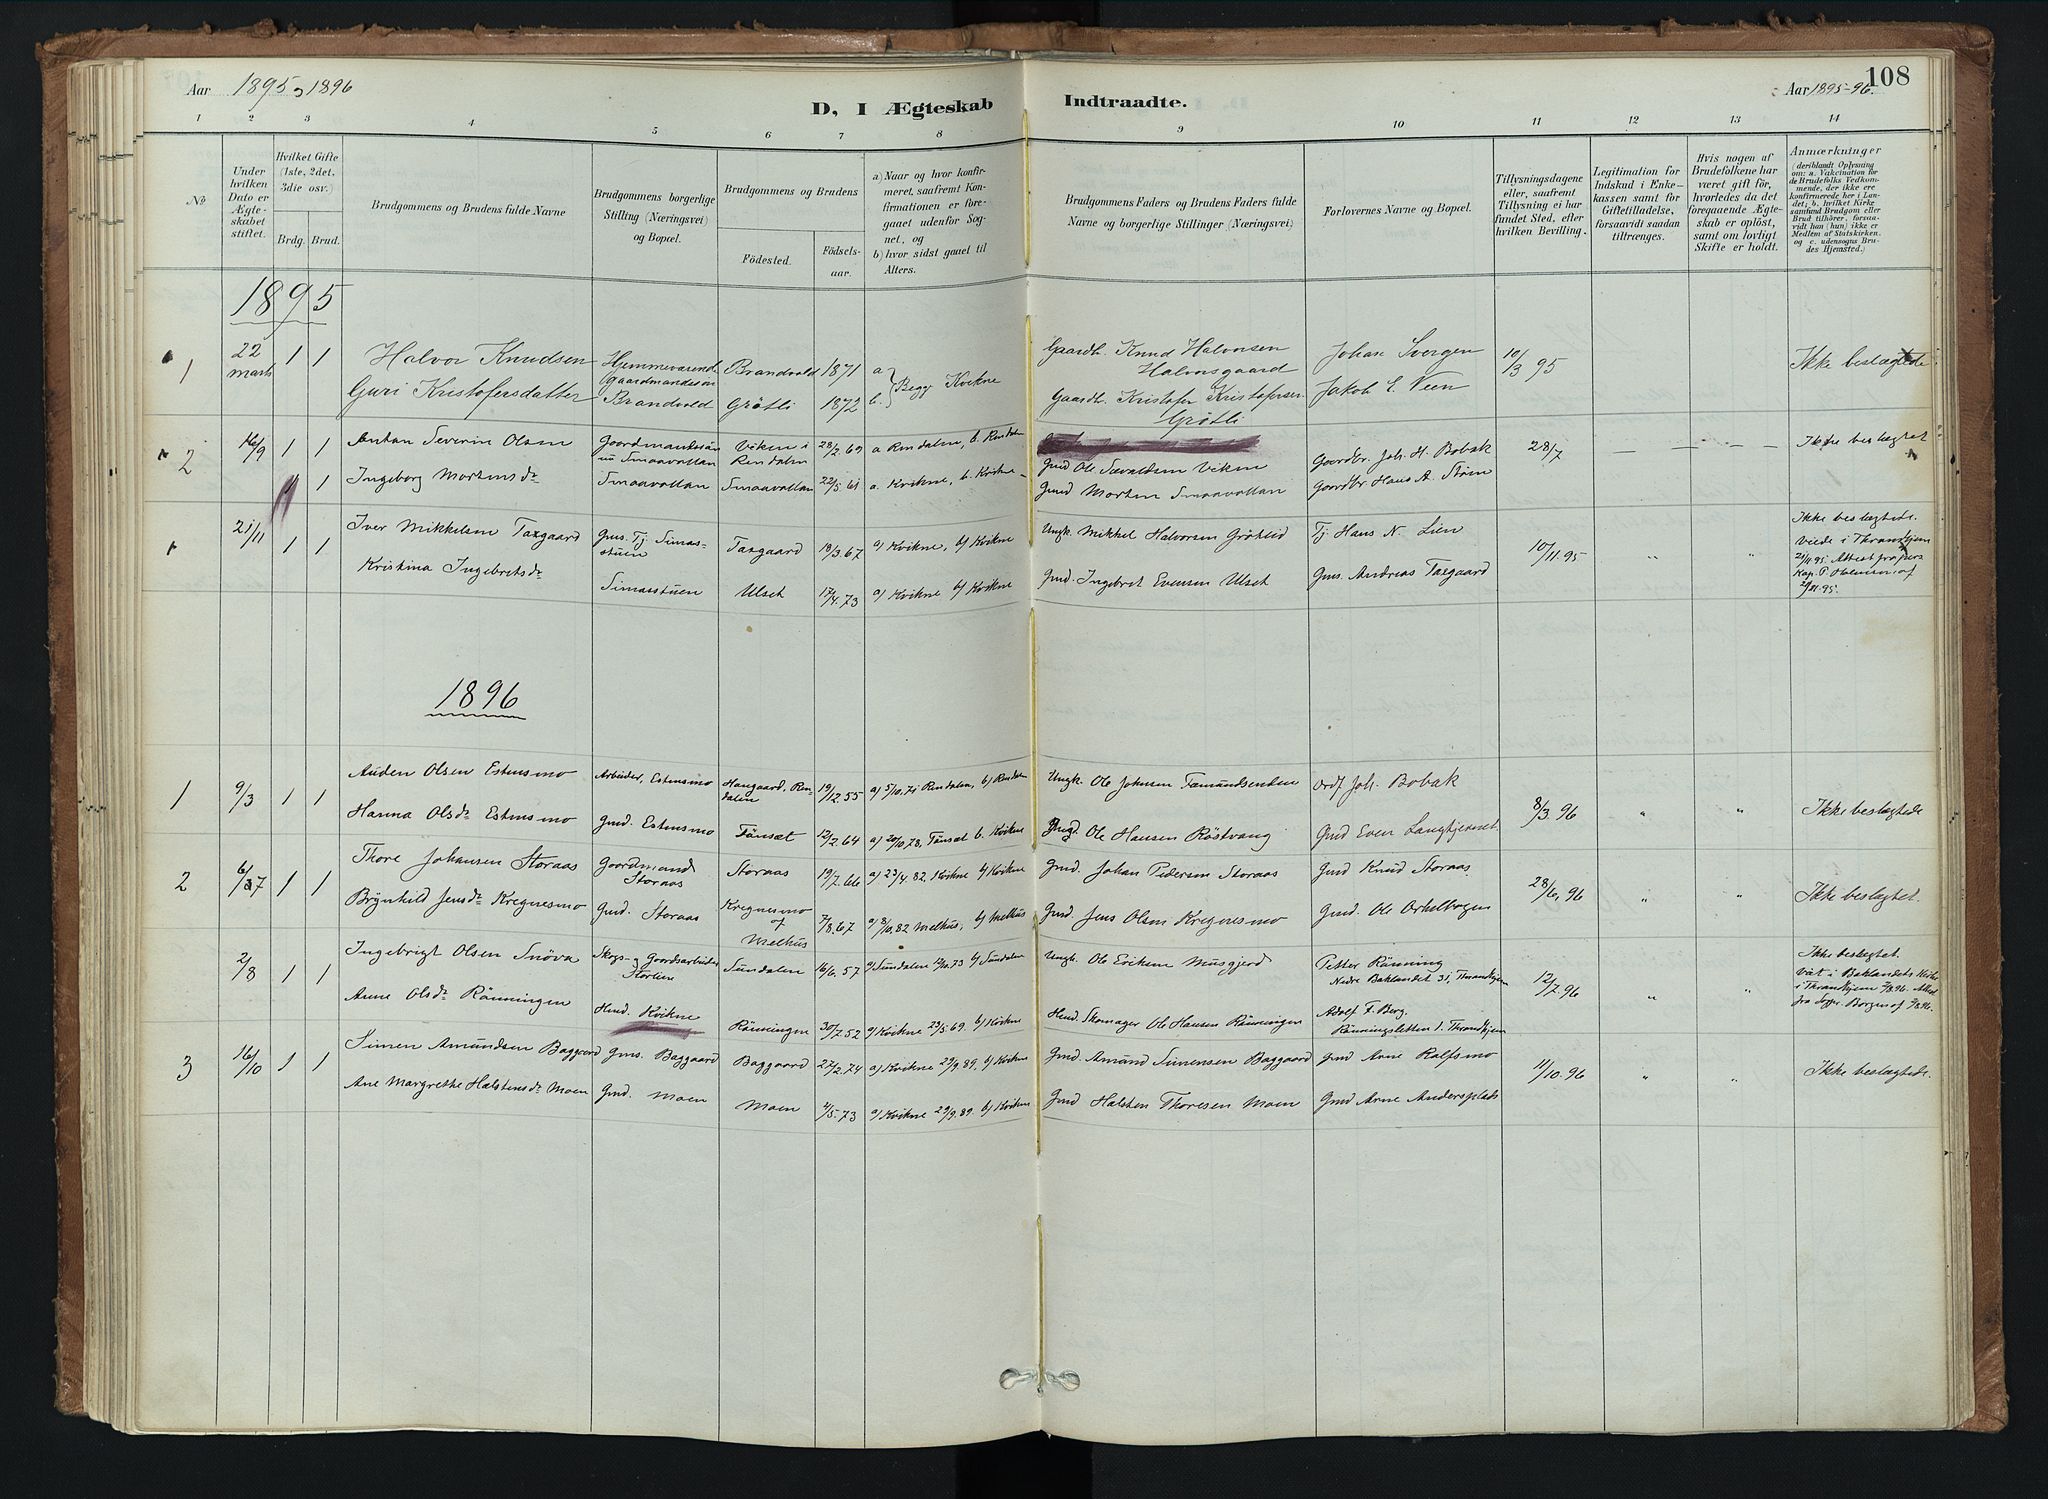 Aar 1895 o 1896
D, I Ægteskab Indtraadte.
Aar 1895-96.
108
1 2 3 4 5 6 7 8 9 10 11 12 13 14
№
Under hvilken Dato er Ægteskabet stiftet.
Hvilket Gifte (1ste, 2det, 3die osv.)
Brdg. Brud.
Brudgommens og Brudens fulde Navne
Brudgommens borgerlige Stilling (Næringsvei) og Bopæl.
Brudgommens og Brudens
Födested.
Födselsaar.
a) Naar og hvor konfirmeret, saafremt Konfirmationen er foregaaet udenfor Sognet, og
b) hvor sidst gaaet til Alters.
Brudgommens Faders og Brudens Faders fulde Navne og borgerlige Stillinger (Næringsvei)
Forlovernes Navne og Bopæl.
Tillysningsdagene eller, saafremt Tillysning ei har fundet Sted, efter hvilken Bevilling.
Legitimation for Indskud i Enkekassen samt for Giftetilladelse, forsaavidt saadan tiltrænges.
Hvis nogen af Brudefolkene har været gift för, hvorledes da det foregaaende Ægteskab er oplöst, samt om lovligt Skifte er holdt.
Anmærkninger (deriblandt Oplysning om: a. Vaccination for de Brudefolks Vedkommende, der ikke ere konfirmerede her i Landet; b. hvilket Kirkesamfund Brudgom eller Brud tilhörer, forsaavidt han (hun) ikke er Medlem af Statskirken, og c. udensogns Brudes Hjemsted.)
1895
1 22 marts 1 1 Halvor Knudsen Hjemmeværende Gaardmandssøn Brandvold Brandvold 1871 a } Begge Kvikne Gaardb. Knud Halvorsen Halvorsgaard Johan Svergen 10/3 95 Ikke beslægtede
Guri Kristofersdatter Grøtli 1872 b. Gaardb. Kristofer Kristofersen Grøtli Jakob E. Veen
2 16/9 1 1 Anton Severin Olsen Gaardmandssøn Smaavollan Viken i Rendalen 28/2 69 a Rendalen, b. Rendalen Gmd Ole Sævaldsen Viken Gaardbr. Joh. H. Bobak 28/7 — — — Ikke beslægtet
1 1 Ingeborg Mortensdr Smaavollan Smaavollan 22/5 61 a. Kvikne, b. Kvikne Gmd Morten Smaavollan Gaardbr Hans A. Støen
21/11 1 1 Iver Mikkelsen Taxgaard Gms. Tj. Simasstuen Taxgaard 18/3 67 a) Kvikne, b) Kvikne Ungk. Mikkel Halvorsen Grøtlid Tj. Hans N. Lien 10/11.95 " " Ikke beslægtede. Viede i Throndhjem 21/11 95. Attest fra pers. Kap. P. Halvorsen af 21/11 95.
Kristina Ingebretsdr Simasstuen Ulset 17/4.73 a) Kvikne b) Kvikne Gmd. Ingebret Evensen Ulset Gms. Andreas Taxgaard
1896
1 9/3 1 1 Auden Olsen Estensmo Arbeider, Estensmo Haugaard, Rendalen 19/12 55 a) 5/10.71 Rendalen, b) Rendalen Ungk. Ole Johnsen Fæmundsenden Ordf Joh. Bobak 8/3.96 " " Ikke beslægtede
Hanna Olsdr Estensmo Gmd. Estensmo Tönset 12/2.64 a) 20/10.78, Tönset b. Kvikne Ungk Ole Hansen Röstvang Gmd Even Langtjernet
2 6/7 1 1 Thore Johansen Storaas Gaardmand Storaas Storaas 19/7.66 a) 23/4.82. Kvikne b) Kvikne Gmd. Johan Pedersen Storaas Gmd Knud Storaas 28/6,96 " " Ikke beslægtet.
Brynhild Jensdr Kregnesmo Gmd. Storaas Kregnesmo af Melhus 7/8.67 a) 8/10.82 Melhus, b) Melhus Gmd. Jens Olsen Kregnesmo Gmd. Ole Orkelbogen
2/8 1 1 Ingebrigt Olsen Snöva Skogs- og Gaardsarbeider Storlien Sundalen 16/6.57 a) Sundalen 12/10.73 b) Sundalen Ungk. Ole Eriksen Musgjerd Petter Rönning Nedre Baklandet 31, Throndhjem 12/7.96 " " Ikke beslægtet. Viet i Baklandets Kirke i Throndhjem 2/8.96. Attest fra Sogpr. Borgen af 2/8.96.
Anne Olsdr Rönningen Hmd. Kvikne Rönningen 30/7.52 a) Kvikne 23/5.69. b) Kvikne Hmd. Skomager Ole Hansen Rönningen Adolf F. Berg. Rönningsletten 1. Throndhjem
3 16/10 1 1 Simen Amundsen Baggaard Gms. Baggaard Baggaard 27/2.74 a) Kvikne 29/9.89. b) Kvikne Gmd. Amund Simensen Baggaard Gmd Arne Ralfsmo 11/10.96 " " Ikke beslægtede.
Ane Margrethe Halstensdr Moen Gmd. Moen Moen 4/5.73 a) Kvikne 29/9.89. b) Kvikne Gmd Halsten Thoresen Moen Gmd Arne Andersplads